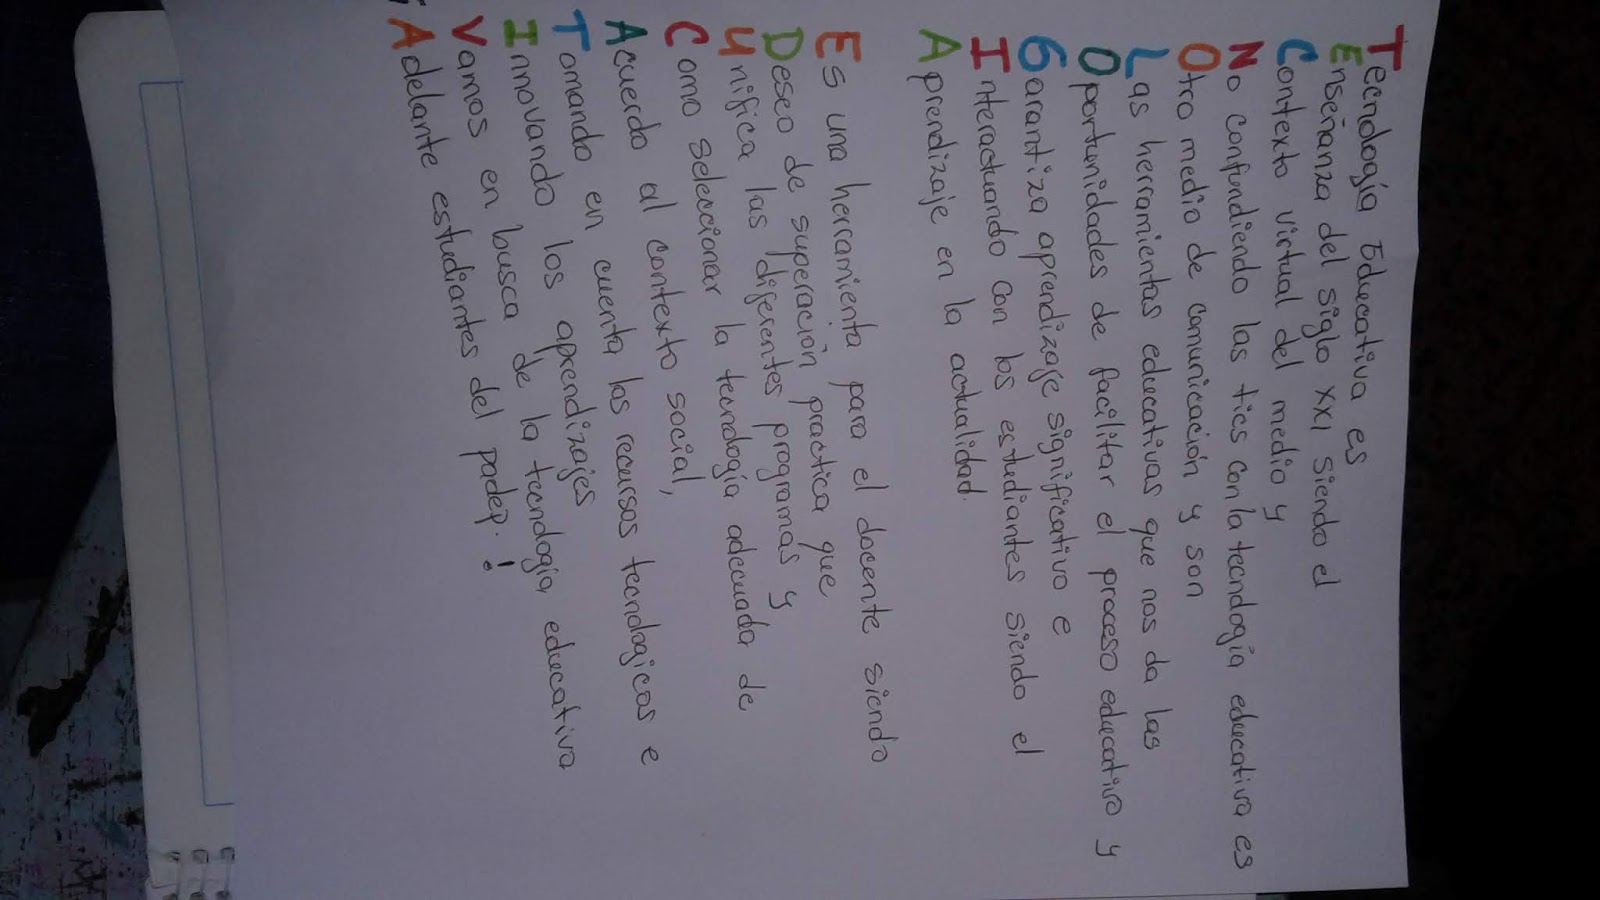 Tecnología Educativa es
Enseñanza del siglo XXI siendo el
Contexto virtual del medio y
No confundiendo las tics con la tecnología educativa es
Otro medio de comunicación y son
Las herramientas educativas que nos da las
Oportunidades de facilitar el proceso educativo y
Garantiza aprendizaje significativo e
Interactuando con los estudiantes siendo el
Aprendizaje en la actualidad.
Es una herramienta para el docente siendo
Deseo de superación practica que
Unifica las diferentes programas y
Como seleccionar la tecnología adecuada de
Acuerdo al contexto social,
Tomando en cuenta los recursos tecnologicos e
Innovando los aprendizajes
Vamos en busca de la tecnología educativa
¡Adelante estudiantes del padep.!